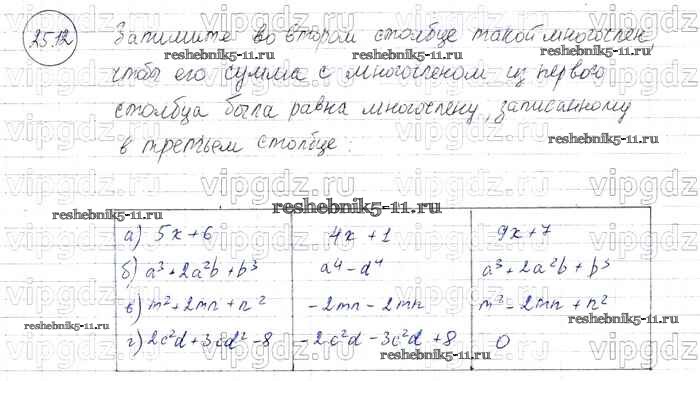 25.12 Запишите во втором столбце такой многочлен,
чтобы его сумма с многочленом из первого
столбца была равна многочлену, записанному
в третьем столбце:
а) 5x+6 4x+1 9x+7
б) a³+2a²b+b³ a⁴-d⁴ a³+2a²b+b³
в) m²+2mn+n² -2mn-2mn m²-2mn+n²
г) 2c²d+3cd²-8 -2c²d-3c²d+8 0
reshebnik5-11.ru
reshebnik5-11.ru
reshebnik5-11.ru
reshebnik5-11.ru
reshebnik5-11.ru
reshebnik5-11.ru
reshebnik5-11.ru
reshebnik5-11.ru